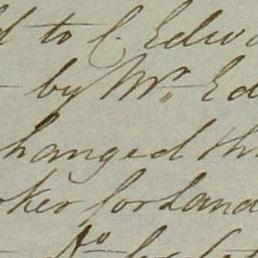 to C. Edw
by Mr. Ed
hanged th
ker for Land